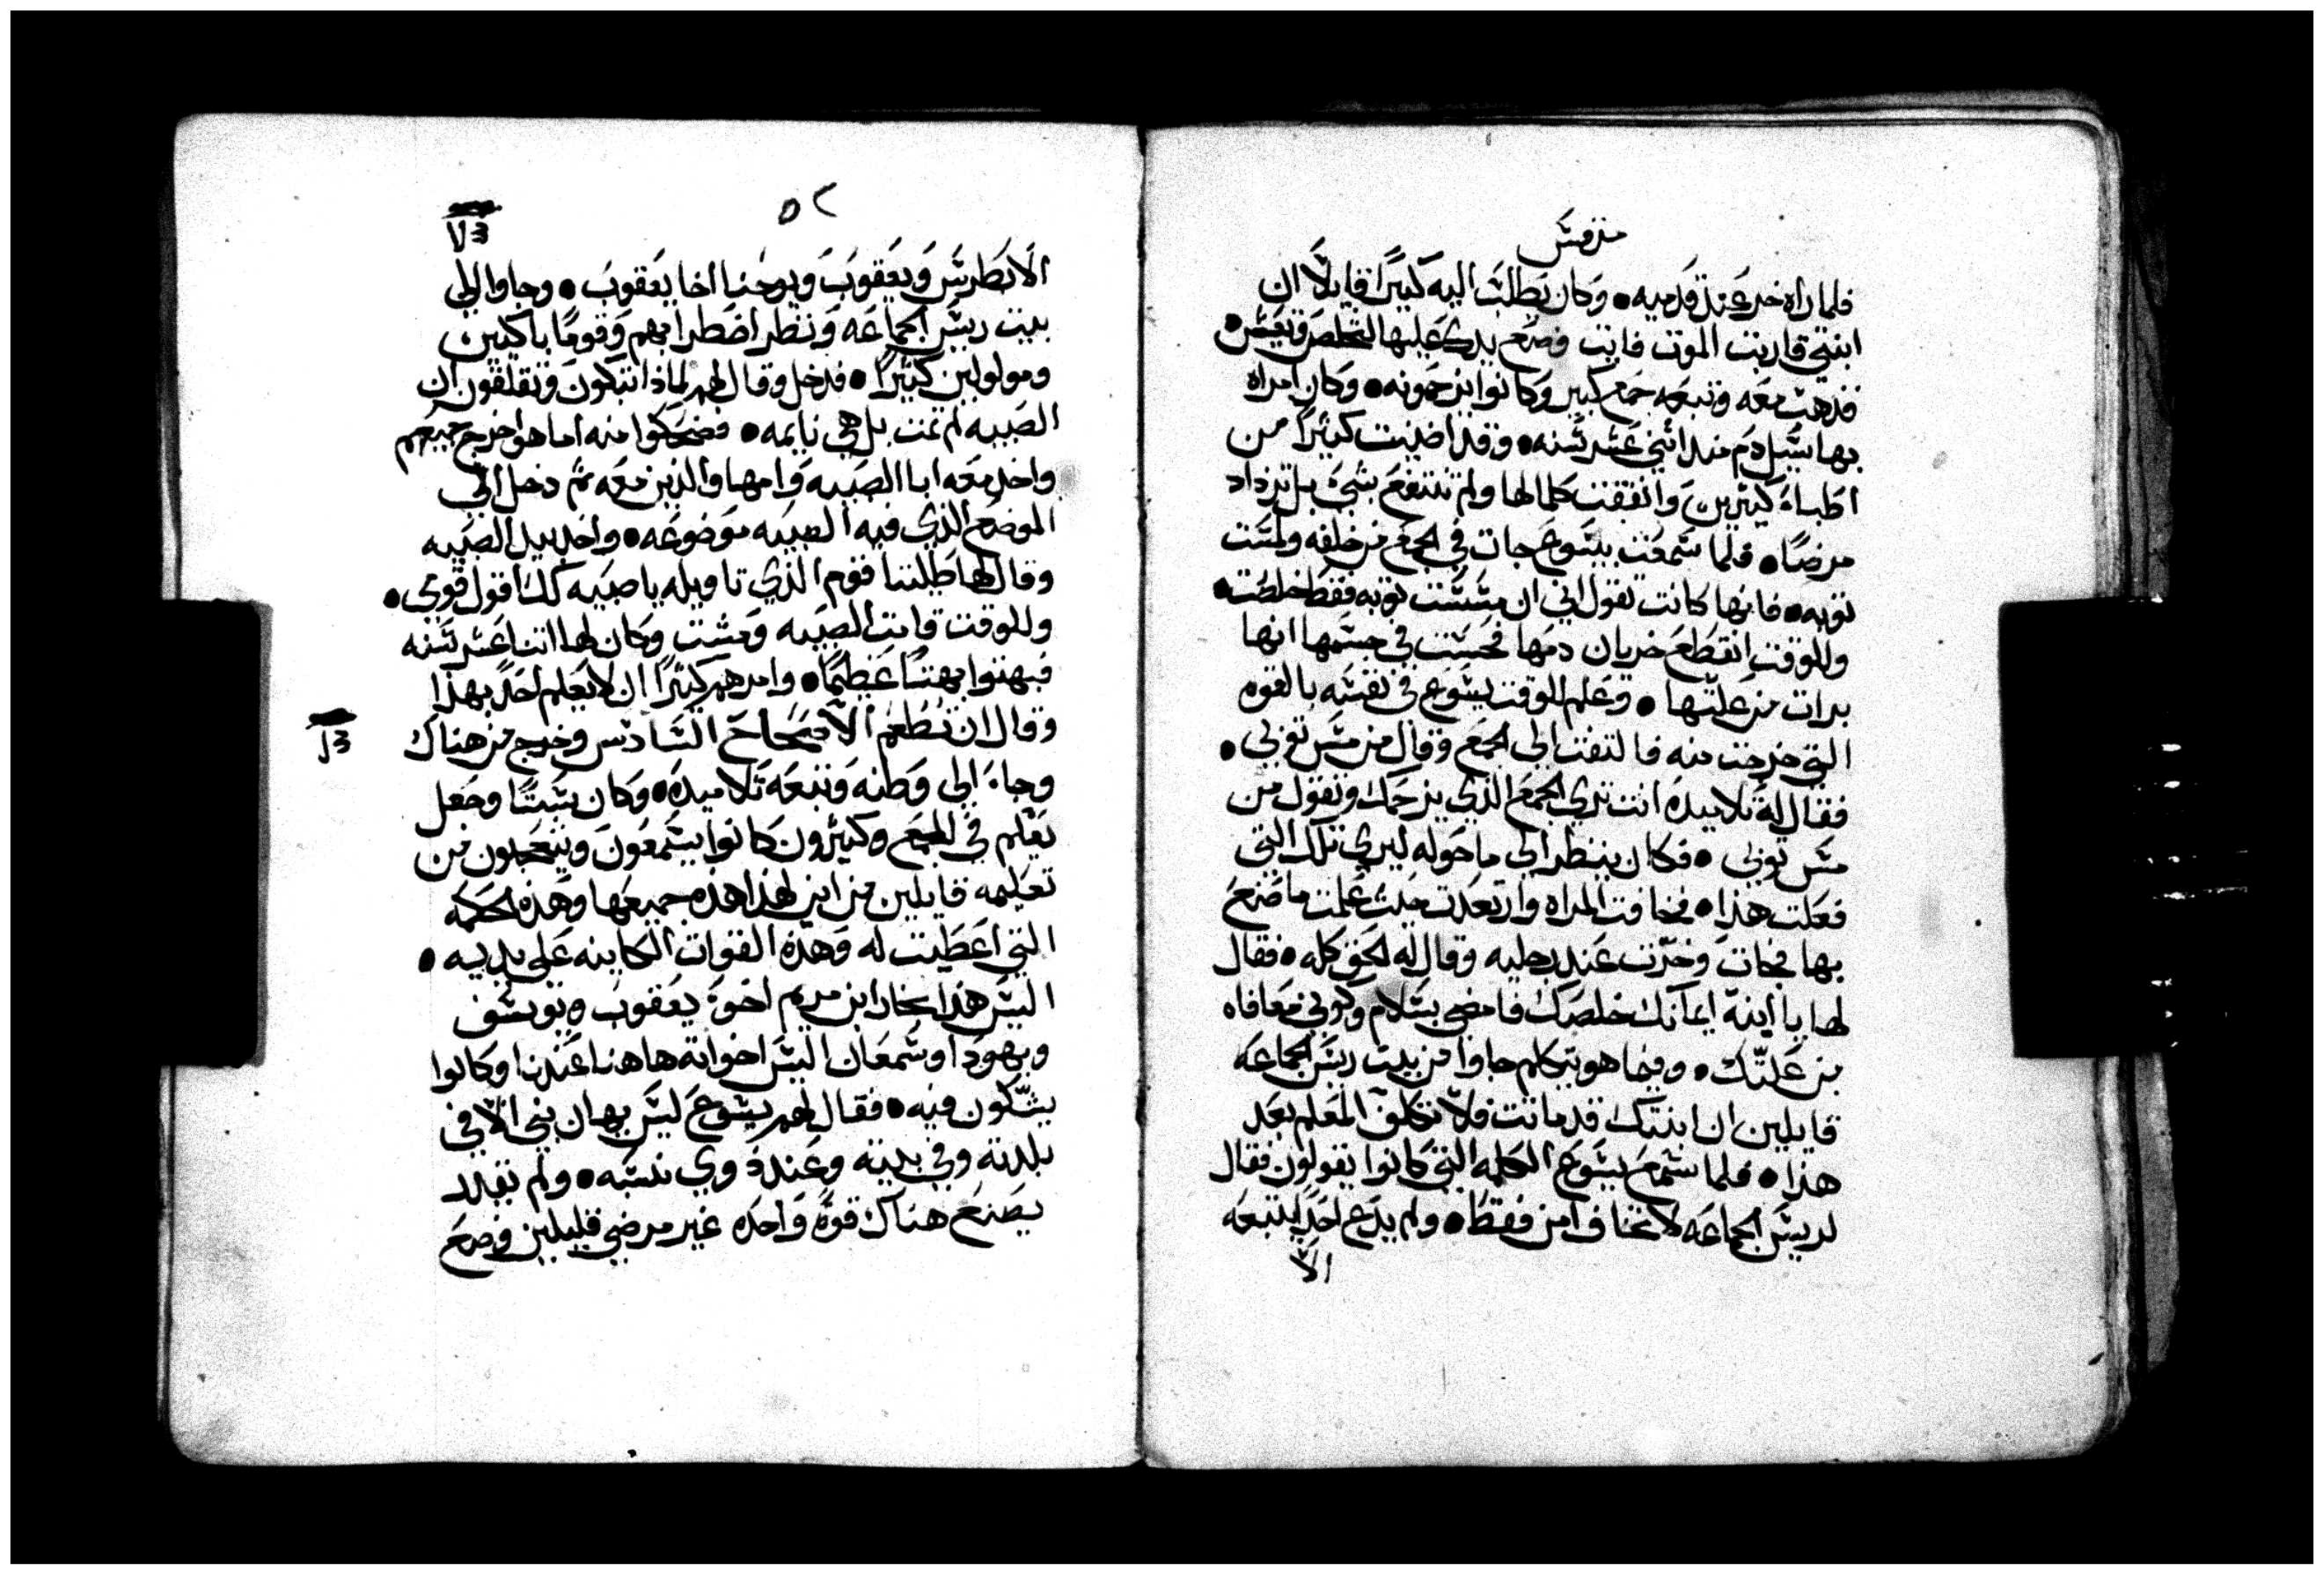 مرقس
فلما راه خر عند قدميه ● وكان يطلب اليه كثيرًا قايلًا ان
ابنتي قاربت الموت فايت وضع يدك عليها لتخلص وتعيش ●
فذهب معه وتبعه جمع كبير وكانوا يزحمونه ● وكان امراه
بها سيل دم منذ اثني عشر سنه ● وقد اضنيت كثيرًا من
اطباء كثيرين وانفقت كلمالها ولم تنتفع بشيء بل تزداد
مرضًا ● فلما سمعت بيسوع جات في الجمع من خلفه ولمست
ثوبه ● فانها كانت تقول اني ان مسست ثوبه فقط خلصت ●
وللوقت انقطع جريان دمها فحست في جسمها انها
برات من علتها ● وعلم للوقت يسوع في نفسه بالقوه
التي خرجت منه فالتفت الى الجمع وقال من مس ثوبي ●
فقال له تلاميذه انت ترى الجمع الذي يزحمك وتقول من
مس ثوبي ● فكان ينظر الى ما حوله ليرى تلك التي
فعلت هذا ● فخافت المراه وارتعدت حيث علمت ما صنع
بها فجات وخرت عند رجليه وقال له الحق كله ● فقال
لها يا ابنة ايمانك خلصك فامضي بسلام وكوني معافاه
من علتك ● وفيما هو يتكلم جاوا من بيت ريس الجماعه
قايلين ان ابنتك قد ماتت فلا تكلف المعلم بعد
هذا ● فلما سمع يسوع الكلمه التي كانوا يقولون فقال
لريس الجماعه لا تخاف امن فقط ● ولم يدع احدًا يتبعه
الا
٥٢
الا بطرس ويعقوب ويوحنا اخا يعقوب ● وجاوا الى
بيت ريس الجماعه ونظر اضطرابهم وقومًا باكيين
ومولولين كثيرًا ● فدخل وقال لهم لماذا تبكون وتقلقون ان
الصبيه لم تمت بل هي نايمه ● فضحكوا منه اما هو اخرج جميعهم
واخذ معه ابا الصبيه وامها والذين معه ثم دخل الى
الموضع الذي فيه الصبيه موضوعه ● واخذ بيد الصبيه
وقال لها طليثا قوم الذي تاويله يا صبيه لك اقول قومي ●
وللوقت قامت الصبيه ومشت وكان لها اثنا عشر سنه
فبهتوا بهتًا عظيمًا ● وامرهم كثيرًا ان لا يعلم احد بهذا
وقال ان تطعم الاصحاح السادس وخرج من هناك
وجاء الى وطنه وتبعه تلاميذه ● وكان سبتًا وجعل
يعلم في المجمع وكثيرون كانوا يسمعون ويتعجبون من
تعليمه قايلين من اين لهذا هذه جميعها وهذه الحكمه
التي اعطيت له وهذه القوات الكاينه على يديه ●
اليس هذا نجار ابن مريم اخوة يعقوب ويوسف
ويهودا وسمعان اليس اخواته هاهنا عندنا وكانوا
يشكون فيه ● فقال لهم يسوع ليس يهان نبي الا في
بلدته وفي بيته وعند ذوي نسبه ● ولم يقدر
يصنع هناك قوة واحده غير مرضى قليلين وضع